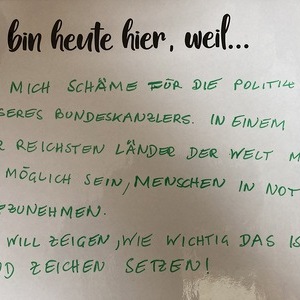 bin heute hier, weil...
MICH SCHÄME FÜR DIE POLITIK
SERES BUNDESKANZLERS. IN EINEM
R REICHSTEN LÄNDER DER WELT M
MÖGLICH SEIN, MENSCHEN IN NOT
FZUNEHMEN.
WILL ZEIGEN, WIE WICHTIG DAS IS
ND ZEICHEN SETZEN!